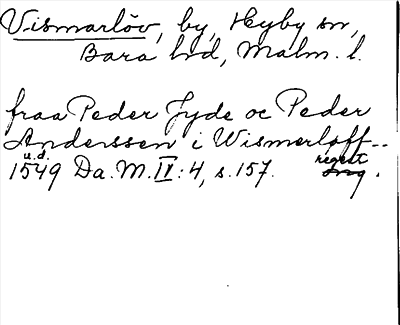 Vismarlöv, by, Hyby sn,
Bara hd, Malm. l.
fraa Peder Jyde oc Peder
Anderssen i Wismerløff--
u.d. regest
1549 Da. M. IV:4, s. 157. orig.